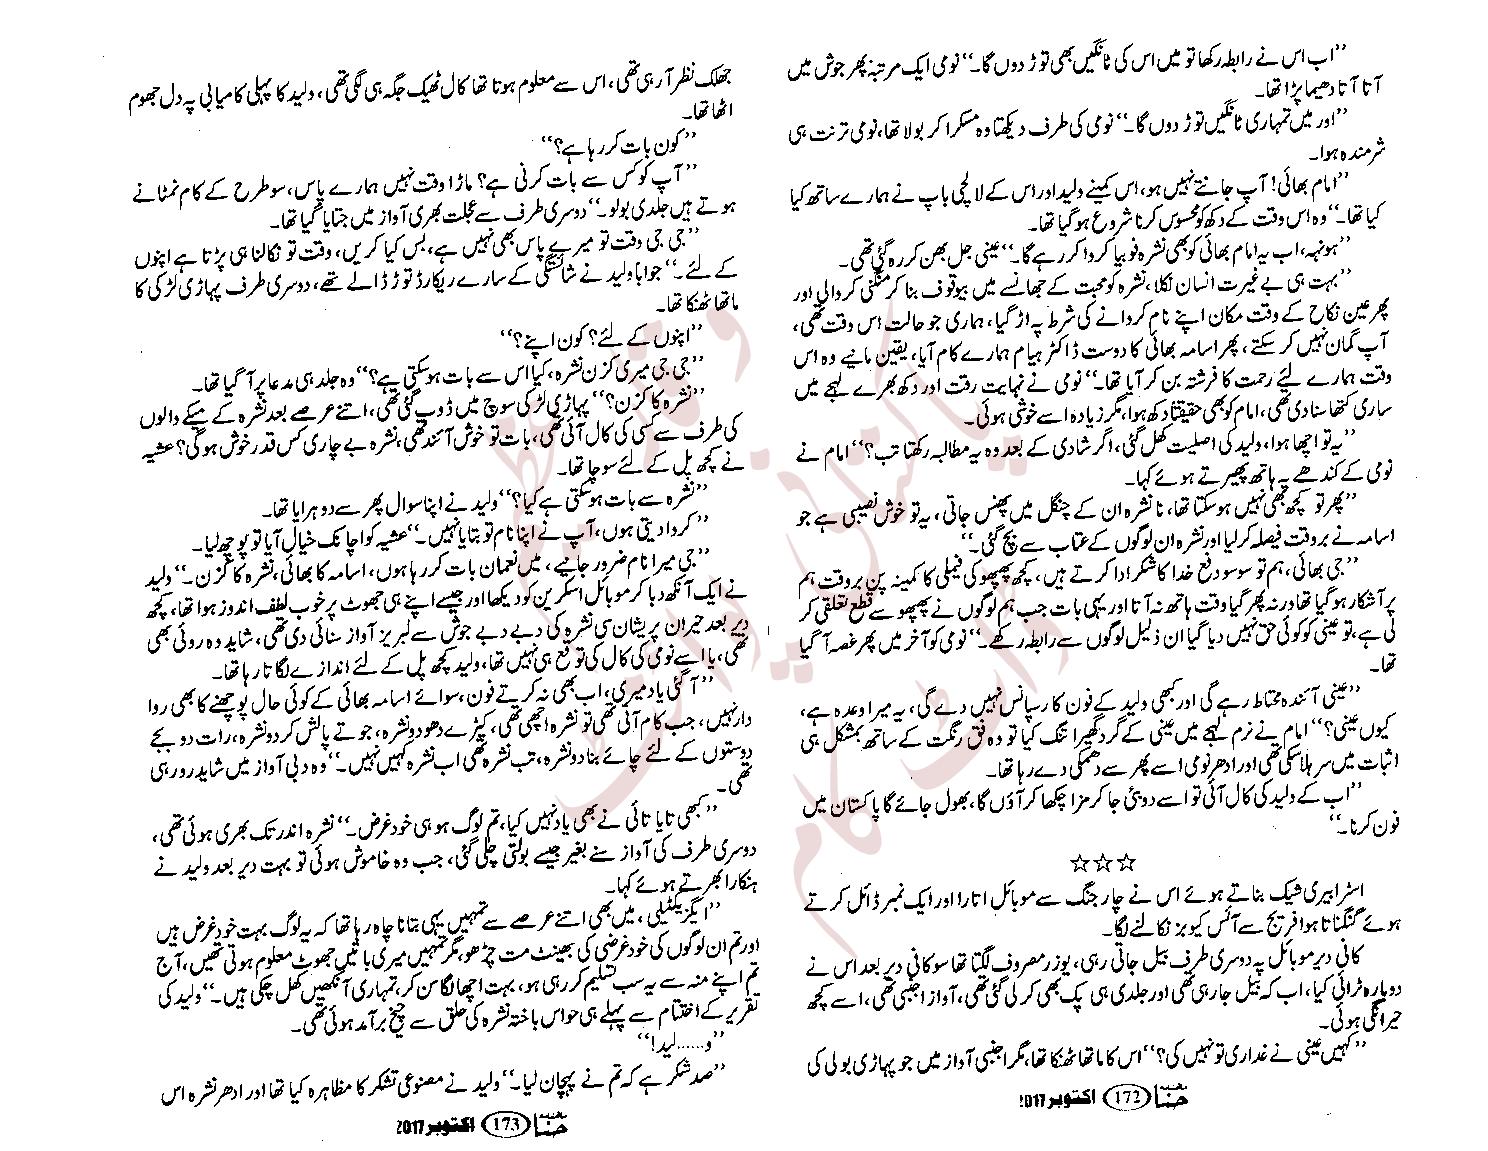 ”اب اس نے رابطہ رکھا تو میں اس کی ٹانگیں بھی توڑ دوں گا۔“ نومی ایک مرتبہ پھر جوش میں
آتا آتا دھیما پڑا تھا۔
”اور میں تمہاری ٹانگیں توڑ دوں گا۔“ نومی کی طرف دیکھتا وہ مسکرا کر بولا تھا، نومی ترنت ہی
شرمندہ ہوا۔
”امام بھائی! آپ جانتے نہیں ہو، اس کمینے ولید اور اس کے لالچی باپ نے ہمارے ساتھ کیا
کیا تھا۔“ وہ اس وقت کے دکھ کو محسوس کرنا شروع ہو گیا تھا۔
”ہونہہ، اب یہ امام بھائی کو بھی نشرہ فوبیا کروا کر رہے گا۔“ عینی جل بھن کر رہ گئی تھی۔
”بہت ہی بے غیرت انسان نکلا، نشرہ کو محبت کے جھانسے میں بیوقوف بنا کر منگنی کر ڈالی اور
پھر عین نکاح کے وقت مکان اپنے نام کروانے کی شرط پہ اڑ گیا، ہماری جو حالت اس وقت تھی،
آپ گمان نہیں کر سکتے، پھر اسامہ بھائی کا دوست ڈاکٹر ہیام ہمارے کام آیا، یقین مانیے وہ اس
وقت ہمارے لئے رحمت کا فرشتہ بن کر آیا تھا۔“ نومی نے نہایت رقت اور دکھ بھرے لہجے میں
ساری کتھا سنا دی تھی، امام کو بھی حقیقتاً دکھ ہوا، مگر زیادہ اسے خوشی ہوئی۔
”یہ تو اچھا ہوا، ولید کی اصلیت کھل گئی، اگر شادی کے بعد وہ یہ مطالبہ رکھتا تب؟“ امام نے
نومی کے کندھے پہ ہاتھ پھیرتے ہوئے کہا۔
”پھر تو کچھ بھی نہیں ہو سکتا تھا، نا نشرہ ان کے چنگل میں پھنس جاتی، یہ تو خوش نصیبی ہے جو
اسامہ نے بروقت فیصلہ کر لیا اور نشرہ ان لوگوں کے عتاب سے بچ گئی۔“
”جی بھائی، ہم تو سو سو دفع خدا کا شکر ادا کرتے ہیں، کچھ پھپھو کی فیملی کا کمینہ پن بروقت ہم
پر آشکار ہو گیا تھا ورنہ پھر گیا وقت ہاتھ نہ آتا اور یہی بات جب ہم لوگوں نے پھپھو سے قطع تعلقی کر
لی ہے، تو عینی کو کوئی حق نہیں دیا گیا ان ذلیل لوگوں سے رابطہ رکھے۔“ نومی کو آخر میں پھر غصہ آ گیا
تھا۔
”عینی آئندہ محتاط رہے گی اور کبھی ولید کے فون کا رسپانس نہیں دے گی، یہ میرا وعدہ ہے،
کیوں عینی؟“ امام نے نرم لہجے میں عینی کے گرد گھیرا تنگ کیا تو وہ فق رنگت کے ساتھ بمشکل ہی
اثبات میں سر ہلا سکی تھی اور ادھر نومی اسے پھر سے دھمکی دے رہا تھا۔
”اب کے ولید کی کال آئی تو اسے دوبئی جا کر مزا چکھا کر آؤں گا، بھول جائے گا پاکستان میں
فون کرنا۔“
☆☆☆
اسٹرابیری شیک بناتے ہوئے اس نے چارجنگ سے موبائل اتارا اور ایک نمبر ڈائل کرتے
ہوئے گنگناتا ہوا فریج سے آئس کیوبز نکالنے لگا۔
کافی دیر موبائل پہ دوسری طرف بیل جاتی رہی، یوزر مصروف لگتا تھا سو کافی دیر بعد اس نے
دوبارہ ٹرائی کیا، اب کہ بیل جا رہی تھی اور جلدی ہی پک بھی کر لی گئی تھی، آواز اجنبی تھی، اسے کچھ
حیرانگی ہوئی۔
”کہیں عینی نے غداری تو نہیں کی؟“ اس کا ماتھا ٹھنکا تھا، مگر اجنبی آواز میں جو پہاڑی بولی کی
حنا 172 اکتوبر 2017
جھلک نظر آ رہی تھی، اس سے معلوم ہوتا تھا کال ٹھیک جگہ ہی لگی تھی، ولید کا پہلی کامیابی پہ دل جھوم
اٹھا تھا۔
”کون بات کر رہا ہے؟“
”آپ کو کس سے بات کرنی ہے؟ ماڑا وقت نہیں ہمارے پاس، سو طرح کے کام نمٹانے
ہوتے ہیں جلدی بولو۔“ دوسری طرف سے عجلت بھری آواز میں جتایا گیا تھا۔
”جی جی وقت تو میرے پاس بھی نہیں ہے، بس کیا کریں، وقت تو نکالنا ہی پڑتا ہے اپنوں
کے لئے۔“ جواباً ولید نے شائستگی کے سارے ریکارڈ توڑ ڈالے تھے، دوسری طرف پہاڑی لڑکی کا
ماتھا ٹھنکا تھا۔
”اپنوں کے لئے؟ کون اپنے؟“
”جی جی میری کزن نشرہ، کیا اس سے بات ہو سکتی ہے؟“ وہ جلد ہی مدعا پر آ گیا تھا۔
”نشرہ کا کزن؟“ پہاڑی لڑکی سوچ میں ڈوب گئی تھی، اتنے عرصے بعد نشرہ کے میکے والوں
کی طرف سے کسی کی کال آئی تھی، بات تو خوش آئند تھی، نشرہ بے چاری کس قدر خوش ہوگی؟ عشیہ
نے کچھ پل کے لئے سوچا تھا۔
”نشرہ سے بات ہو سکتی ہے کیا؟“ ولید نے اپنا سوال پھر سے دوہرایا تھا۔
”کروا دیتی ہوں، آپ نے اپنا نام تو بتایا نہیں۔“ عشیہ کو اچانک خیال آیا تو پوچھ لیا۔
”جی میرا نام ضرور جانیے، میں نعمان بات کر رہا ہوں، اسامہ کا بھائی، نشرہ کا کزن۔“ ولید
نے ایک آنکھ دبا کر موبائل اسکرین کو دیکھا اور جیسے اپنے ہی جھوٹ پر خوب لطف اندوز ہوا تھا، کچھ
دیر بعد حیران پریشان سی نشرہ کی دبے دبے جوش سے لبریز آواز سنائی دی تھی، شاید وہ روئی بھی
تھی، یا اسے نومی کی کال کی توقع ہی نہیں تھا، ولید کچھ پل کے لئے اندازے لگاتا رہا تھا۔
”آ گئی یاد میری، اب بھی نہ کرتے فون، سوائے اسامہ بھائی کے کوئی حال پوچھنے کا بھی روا
دار نہیں، جب کام آتی تھی تو نشرہ اچھی تھی، کپڑے دھو دو نشرہ، جوتے پالش کر دو نشرہ، رات دو بجے
دوستوں کے لئے چائے بنا دو نشرہ، تب نشرہ تھی اب نشرہ کہیں نہیں۔“ وہ دبی آواز میں شاید رو رہی
تھی۔
”کبھی تایا تائی نے بھی یاد نہیں کیا، تم لوگ ہو ہی خود غرض۔“ نشرہ اندر تک بھری ہوئی تھی،
دوسری طرف کی آواز سنے بغیر جیسے بولتی چلی گئی، جب وہ خاموش ہوئی تو بہت دیر بعد ولید نے
ہنکارا بھرتے ہوئے کہا۔
”ایگزیکٹلی، میں بھی اتنے عرصے سے تمہیں یہی بتانا چاہ رہا تھا کہ یہ لوگ بہت خود غرض ہیں
اور تم ان لوگوں کی خود غرضی کی بھینٹ مت چڑھو، مگر تمہیں میری باتیں جھوٹ معلوم ہوتی تھیں، آج
تم اپنے منہ سے یہ سب تسلیم کر رہی ہو، بہت اچھا لگا سن کر، تمہاری آنکھیں کھل چکی ہیں۔“ ولید کی
تقریر کے اختتام سے پہلے ہی حواس باختہ نشرہ کی حلق سے چیخ برآمد ہوئی تھی۔
”و……لید!“
”صد شکر ہے کہ تم نے پہچان لیا۔“ ولید نے مصنوعی تشکر کا مظاہرہ کیا تھا اور ادھر نشرہ اس
حنا 173 اکتوبر 2017